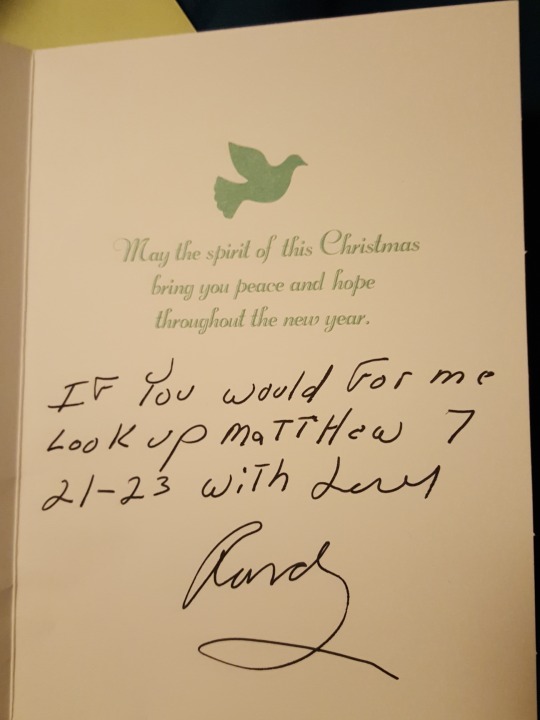 May the spirit of this Christmas
bring you peace and hope
throughout the new year.
IF You would For me
Look up MaTTHew 7
21-23 wiTH
Randy